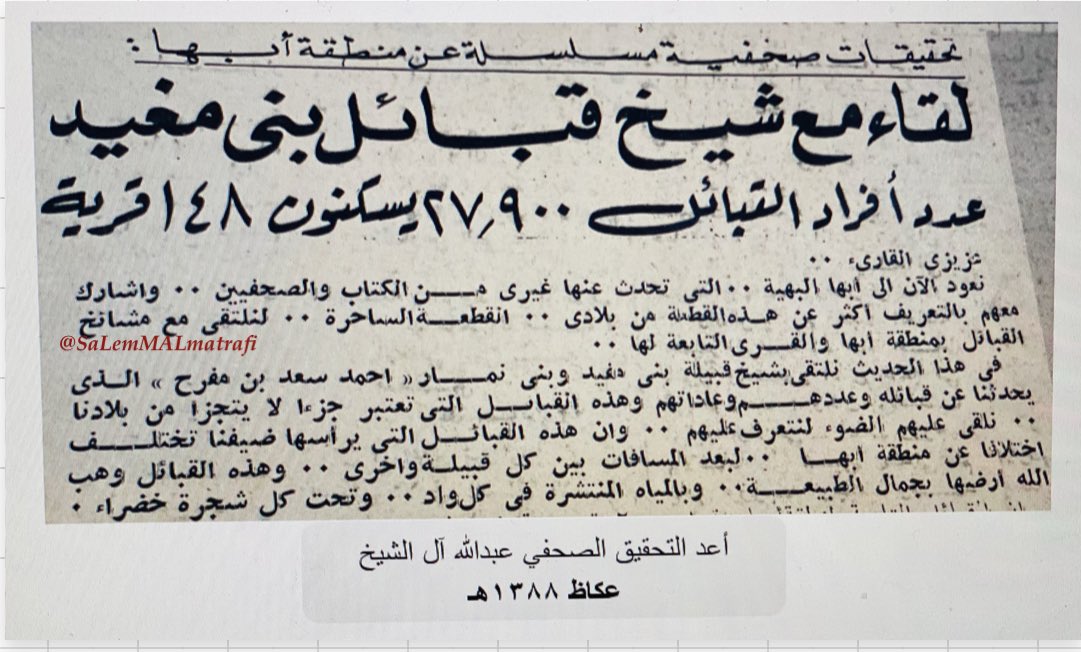 تحقيقات صحفية مسلسلة عن منطقة أبها :
لقاء مع شيخ قبائل بنى مغيد
عدد أفراد القبائل ٢٧,٩٠٠ يسكنون ١٤٨ قرية
عزيزى القارىء ٠٠
نعود الآن الى ابها البهية ٠٠ التى تحدث عنها غيرى من الكتاب والصحفيين ٠٠ واشارك
معهم بالتعريف اكثر عن هذه القطعة من بلادى ٠٠ القطعة الساحرة ٠٠ لنلتقى مع مشائخ
القبائل بمنطقة ابها والقرى التابعة لها ٠٠
@SaLemMALmatrafi
فى هذا الحديث نلتقى بشيخ قبيلة بنى مغيد وبنى نمار « احمد سعد بن مفرح » الذى
يحدثنا عن قبائله وعددهم وعاداتهم وهذه القبائل التى تعتبر جزءا لا يتجزا من بلادنا
٠٠ نلقى عليهم الضوء لنتعرف عليهم ٠٠ وان هذه القبائل التى يرأسها ضيفنا تختلف
اختلافا عن منطقة ابها ٠٠ لبعد المسافات بين كل قبيلة واخرى ٠٠ وهذه القبائل وهب
الله ارضها بجمال الطبيعة ٠٠ وبالمياه المنتشرة فى كل واد ٠٠ وتحت كل شجرة خضراء ٠
أعد التحقيق الصحفي عبدالله آل الشيخ
عكاظ ١٣٨٨هـ